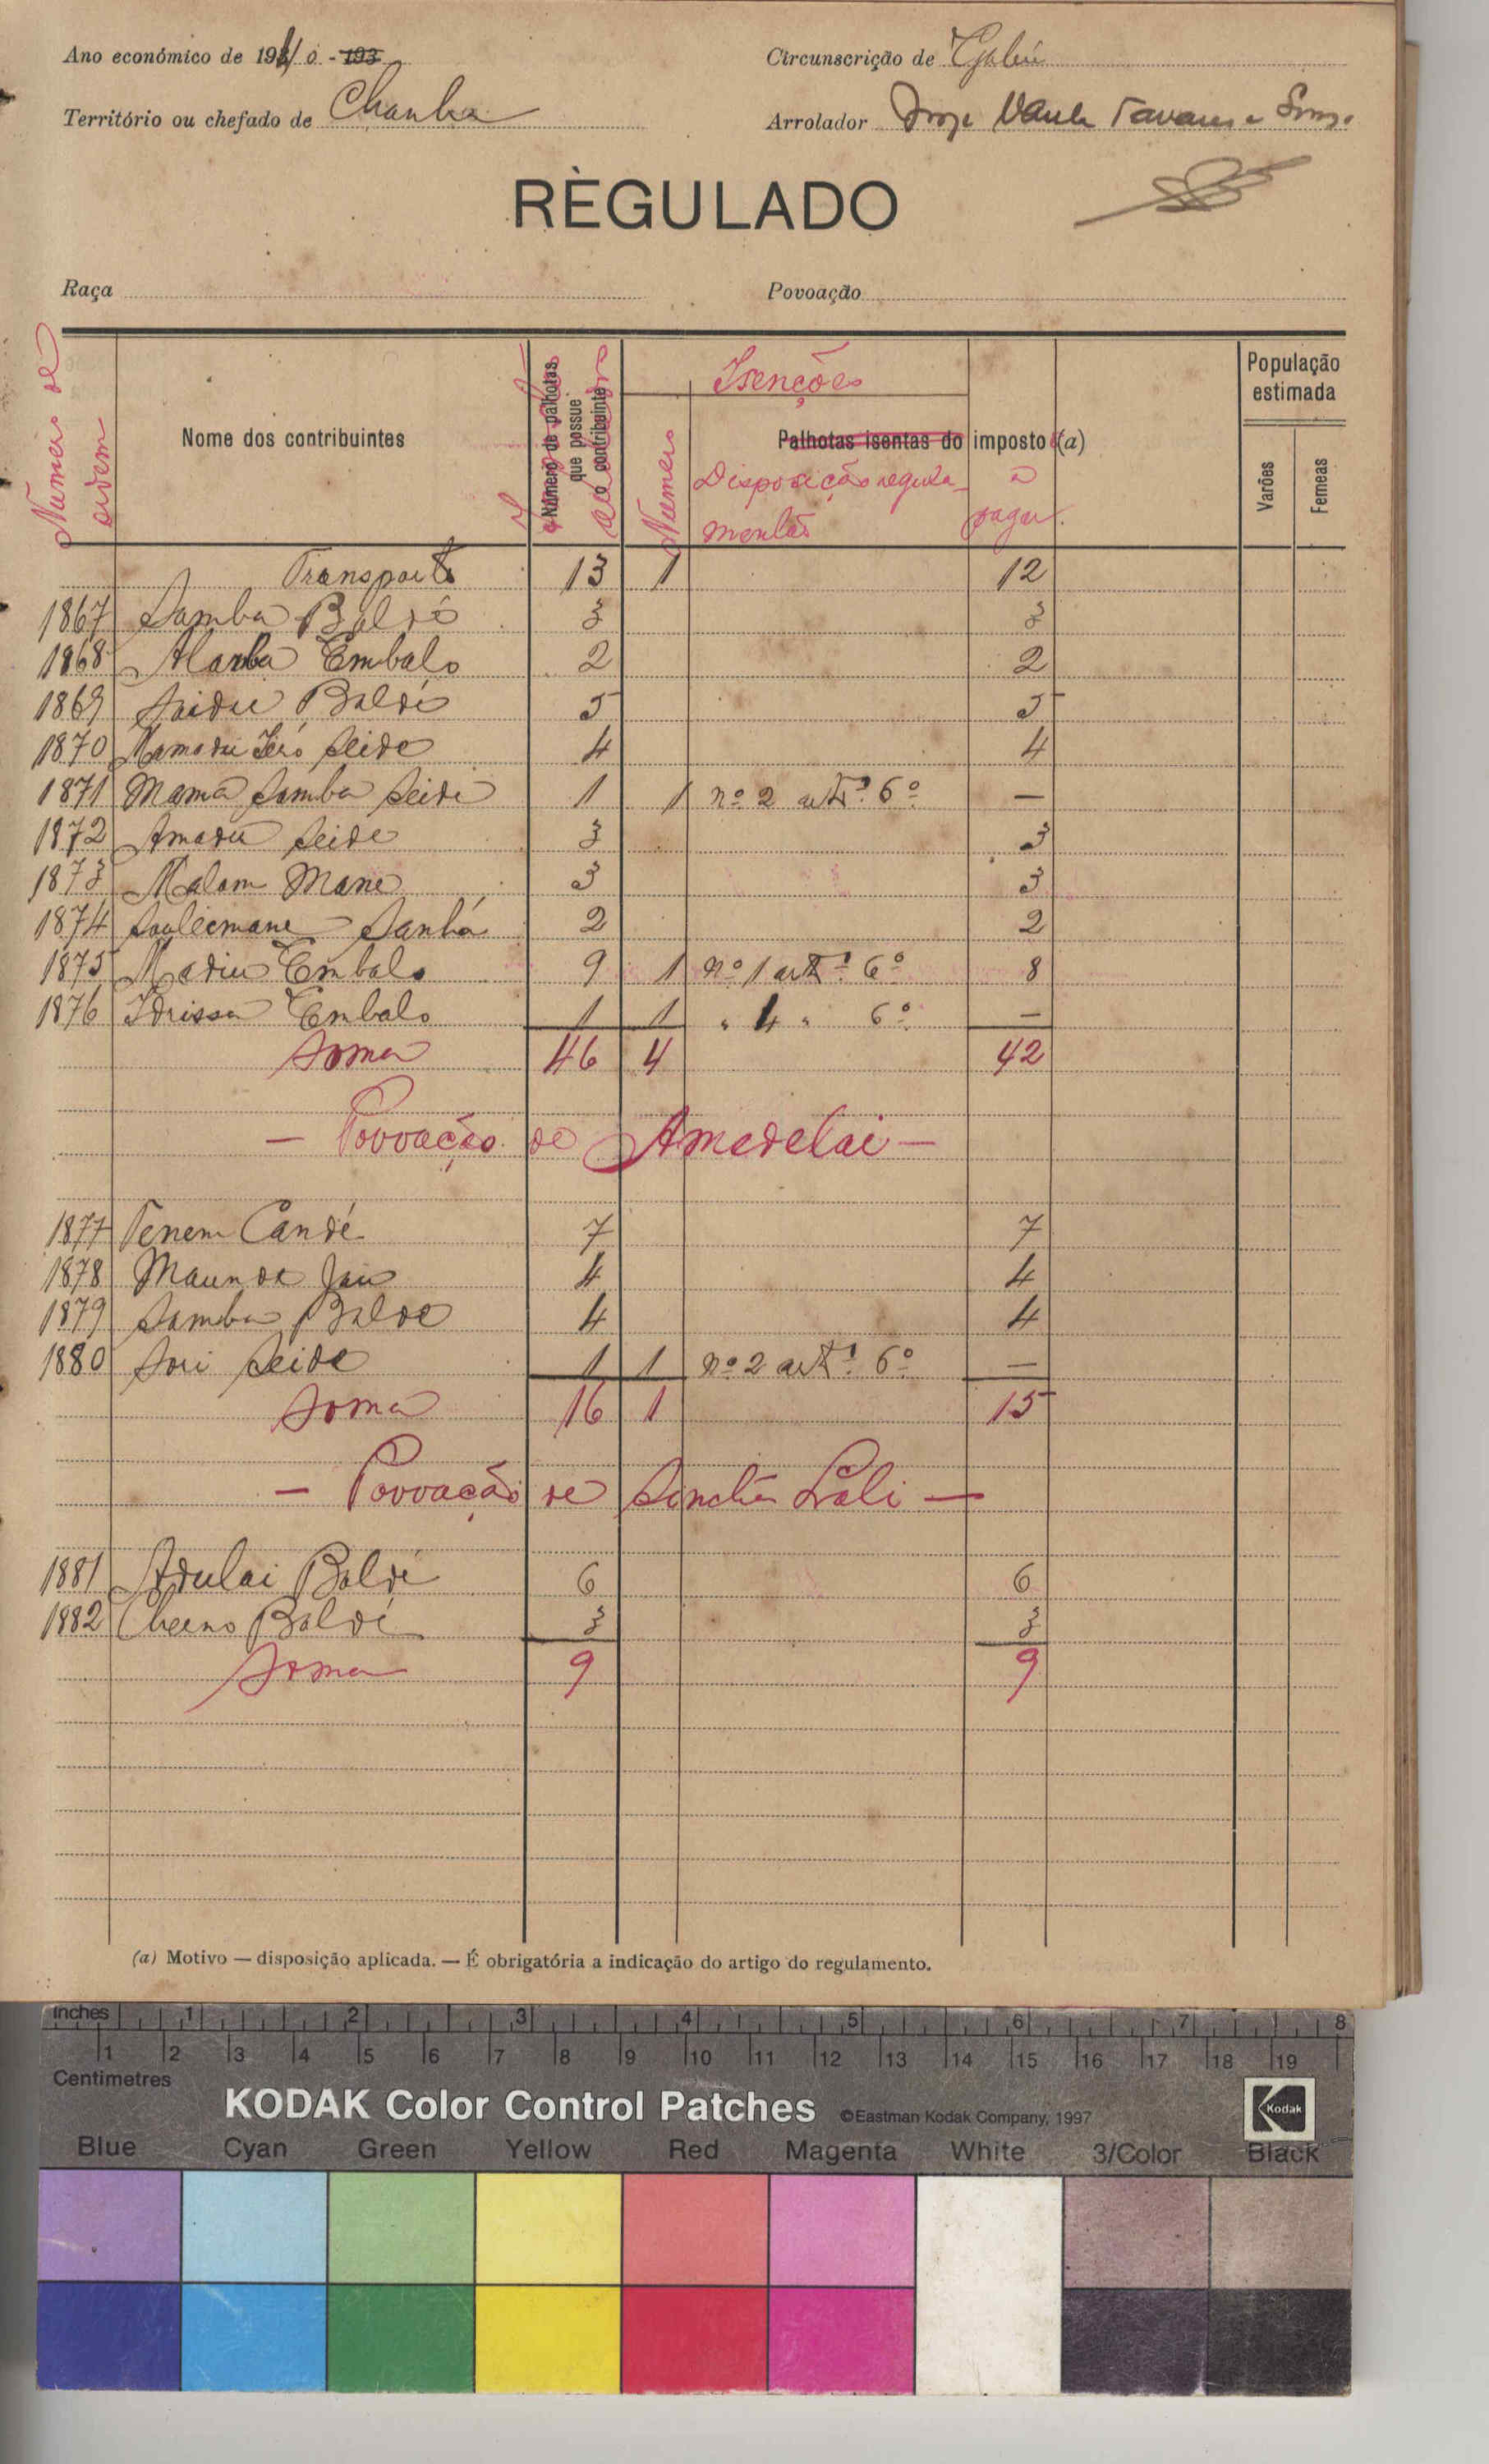 Ano económico de 194/0 - 193
Circunscrição de Gabú
Território ou chefado de Chanha
Arrolador Jorge Tavares
RÈGULADO
Raça
Povoação
Numero de ordem
Nome dos contribuintes
Número de palhotas que possue o contribuinte
Isenções
Numero
Palhotas isentas do imposto (a)
Disposição regulamentar
a pagar
População estimada
Varões
Femeas
Transporte 13 1 12
1867 Samba Baldé 3 3
1868 Embalo 2 2
1869 Saidu Baldé 5 5
1870 Mamadu Iéró Seide 4 4
1871 Mama Samba Seidi 1 1 nº 2 artº 6º —
1872 Amadu Seide 3 3
1873 Malam Mané 3 3
1874 Souleimane Sanhá 2 2
1875 Madiu Embalo 9 1 nº 1 artº 6º 8
1876 Idrissa Embalo 1 1 " 4 " 6º —
Soma 46 4 42
— Povoação de Amedelai —
1877 Tenem Candé 7 7
1878 Maunde Jau 4 4
1879 Samba Balde 4 4
1880 Sori Seide 1 1 nº 2 artº 6º —
Soma 16 1 15
— Povoação de Sinchã Lali —
1881 Adulai Baldé 6 6
1882 Cherno Baldé 3 3
Soma 9 9
(a) Motivo — disposição aplicada. — É obrigatória a indicação do artigo do regulamento.
Inches 1 2 3 4 5 6 7 8
1 2 3 4 5 6 7 8 9 10 11 12 13 14 15 16 17 18 19
Centimetres
KODAK Color Control Patches ©Eastman Kodak Company, 1997 Kodak
Blue Cyan Green Yellow Red Magenta White 3/Color Black